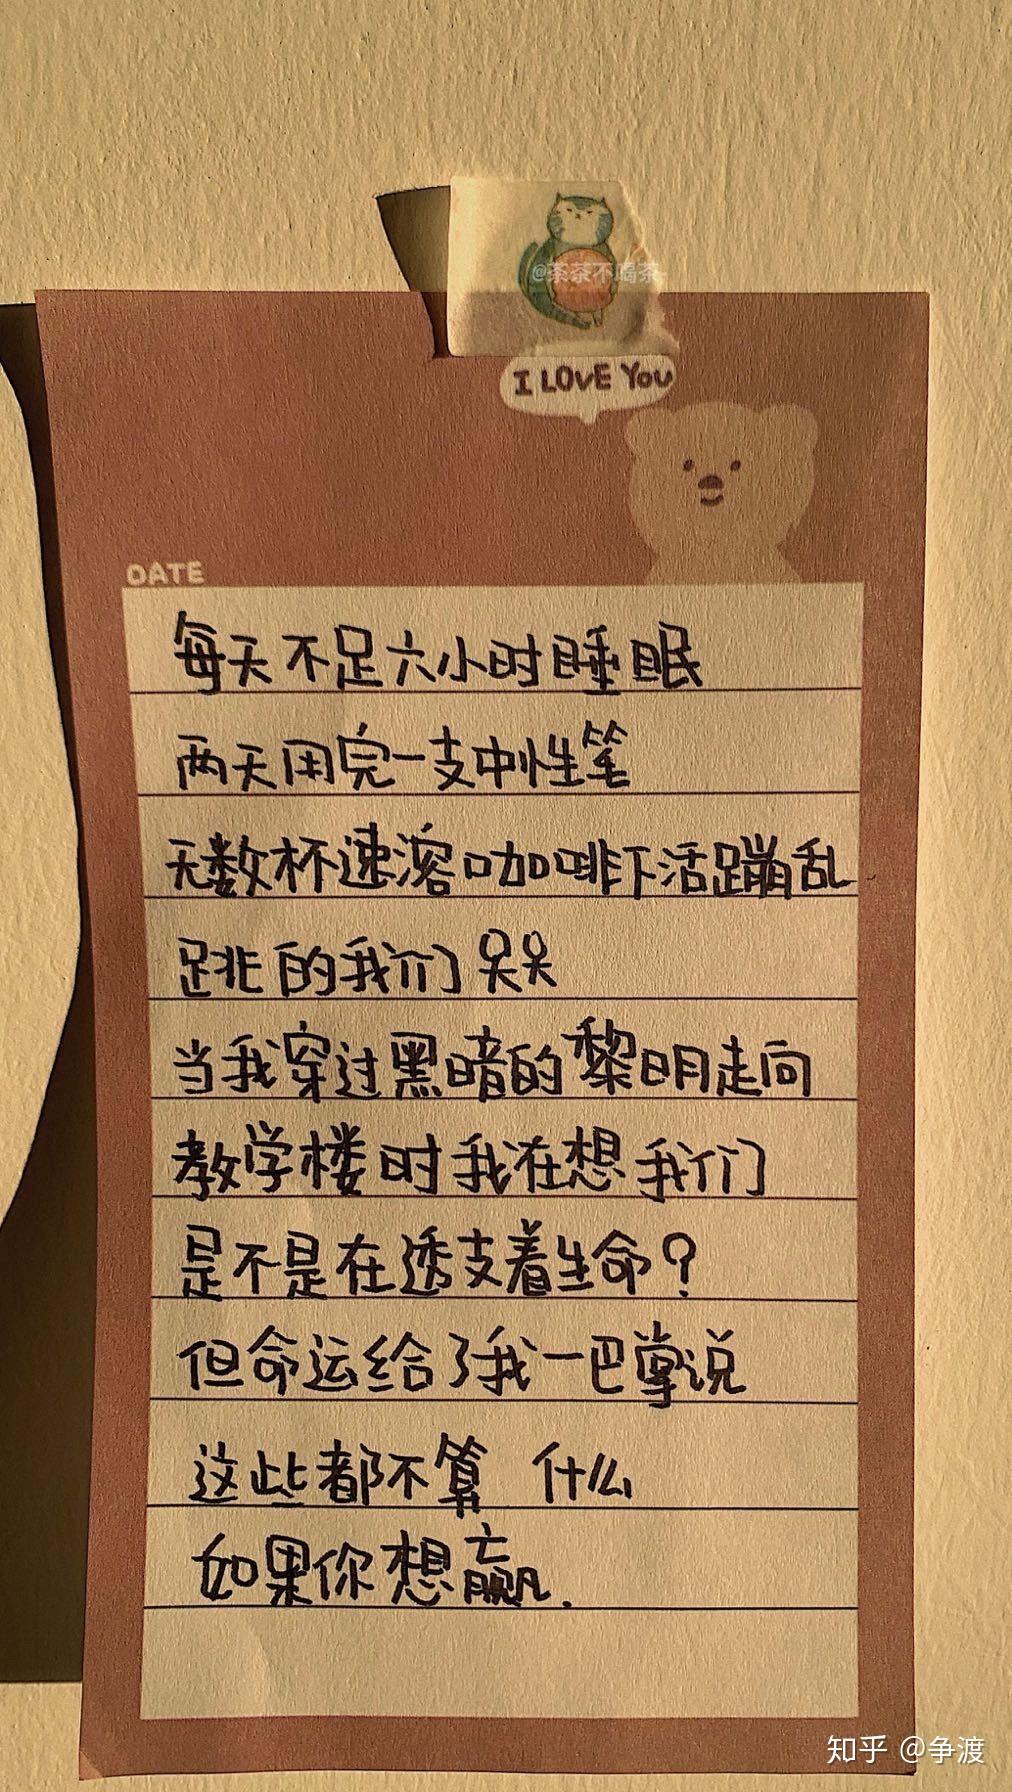 @茶茶不喝茶
I LOVE YOU
DATE
每天不足六小时睡眠
两天用完一支中性笔
无数杯速溶咖啡下活蹦乱
跳的我们哭哭
当我穿过黑暗的黎明走向
教学楼时我在想我们
是不是在透支着生命？
但命运给了我一巴掌说
这些都不算 什么
如果你想赢.
知乎 @争渡